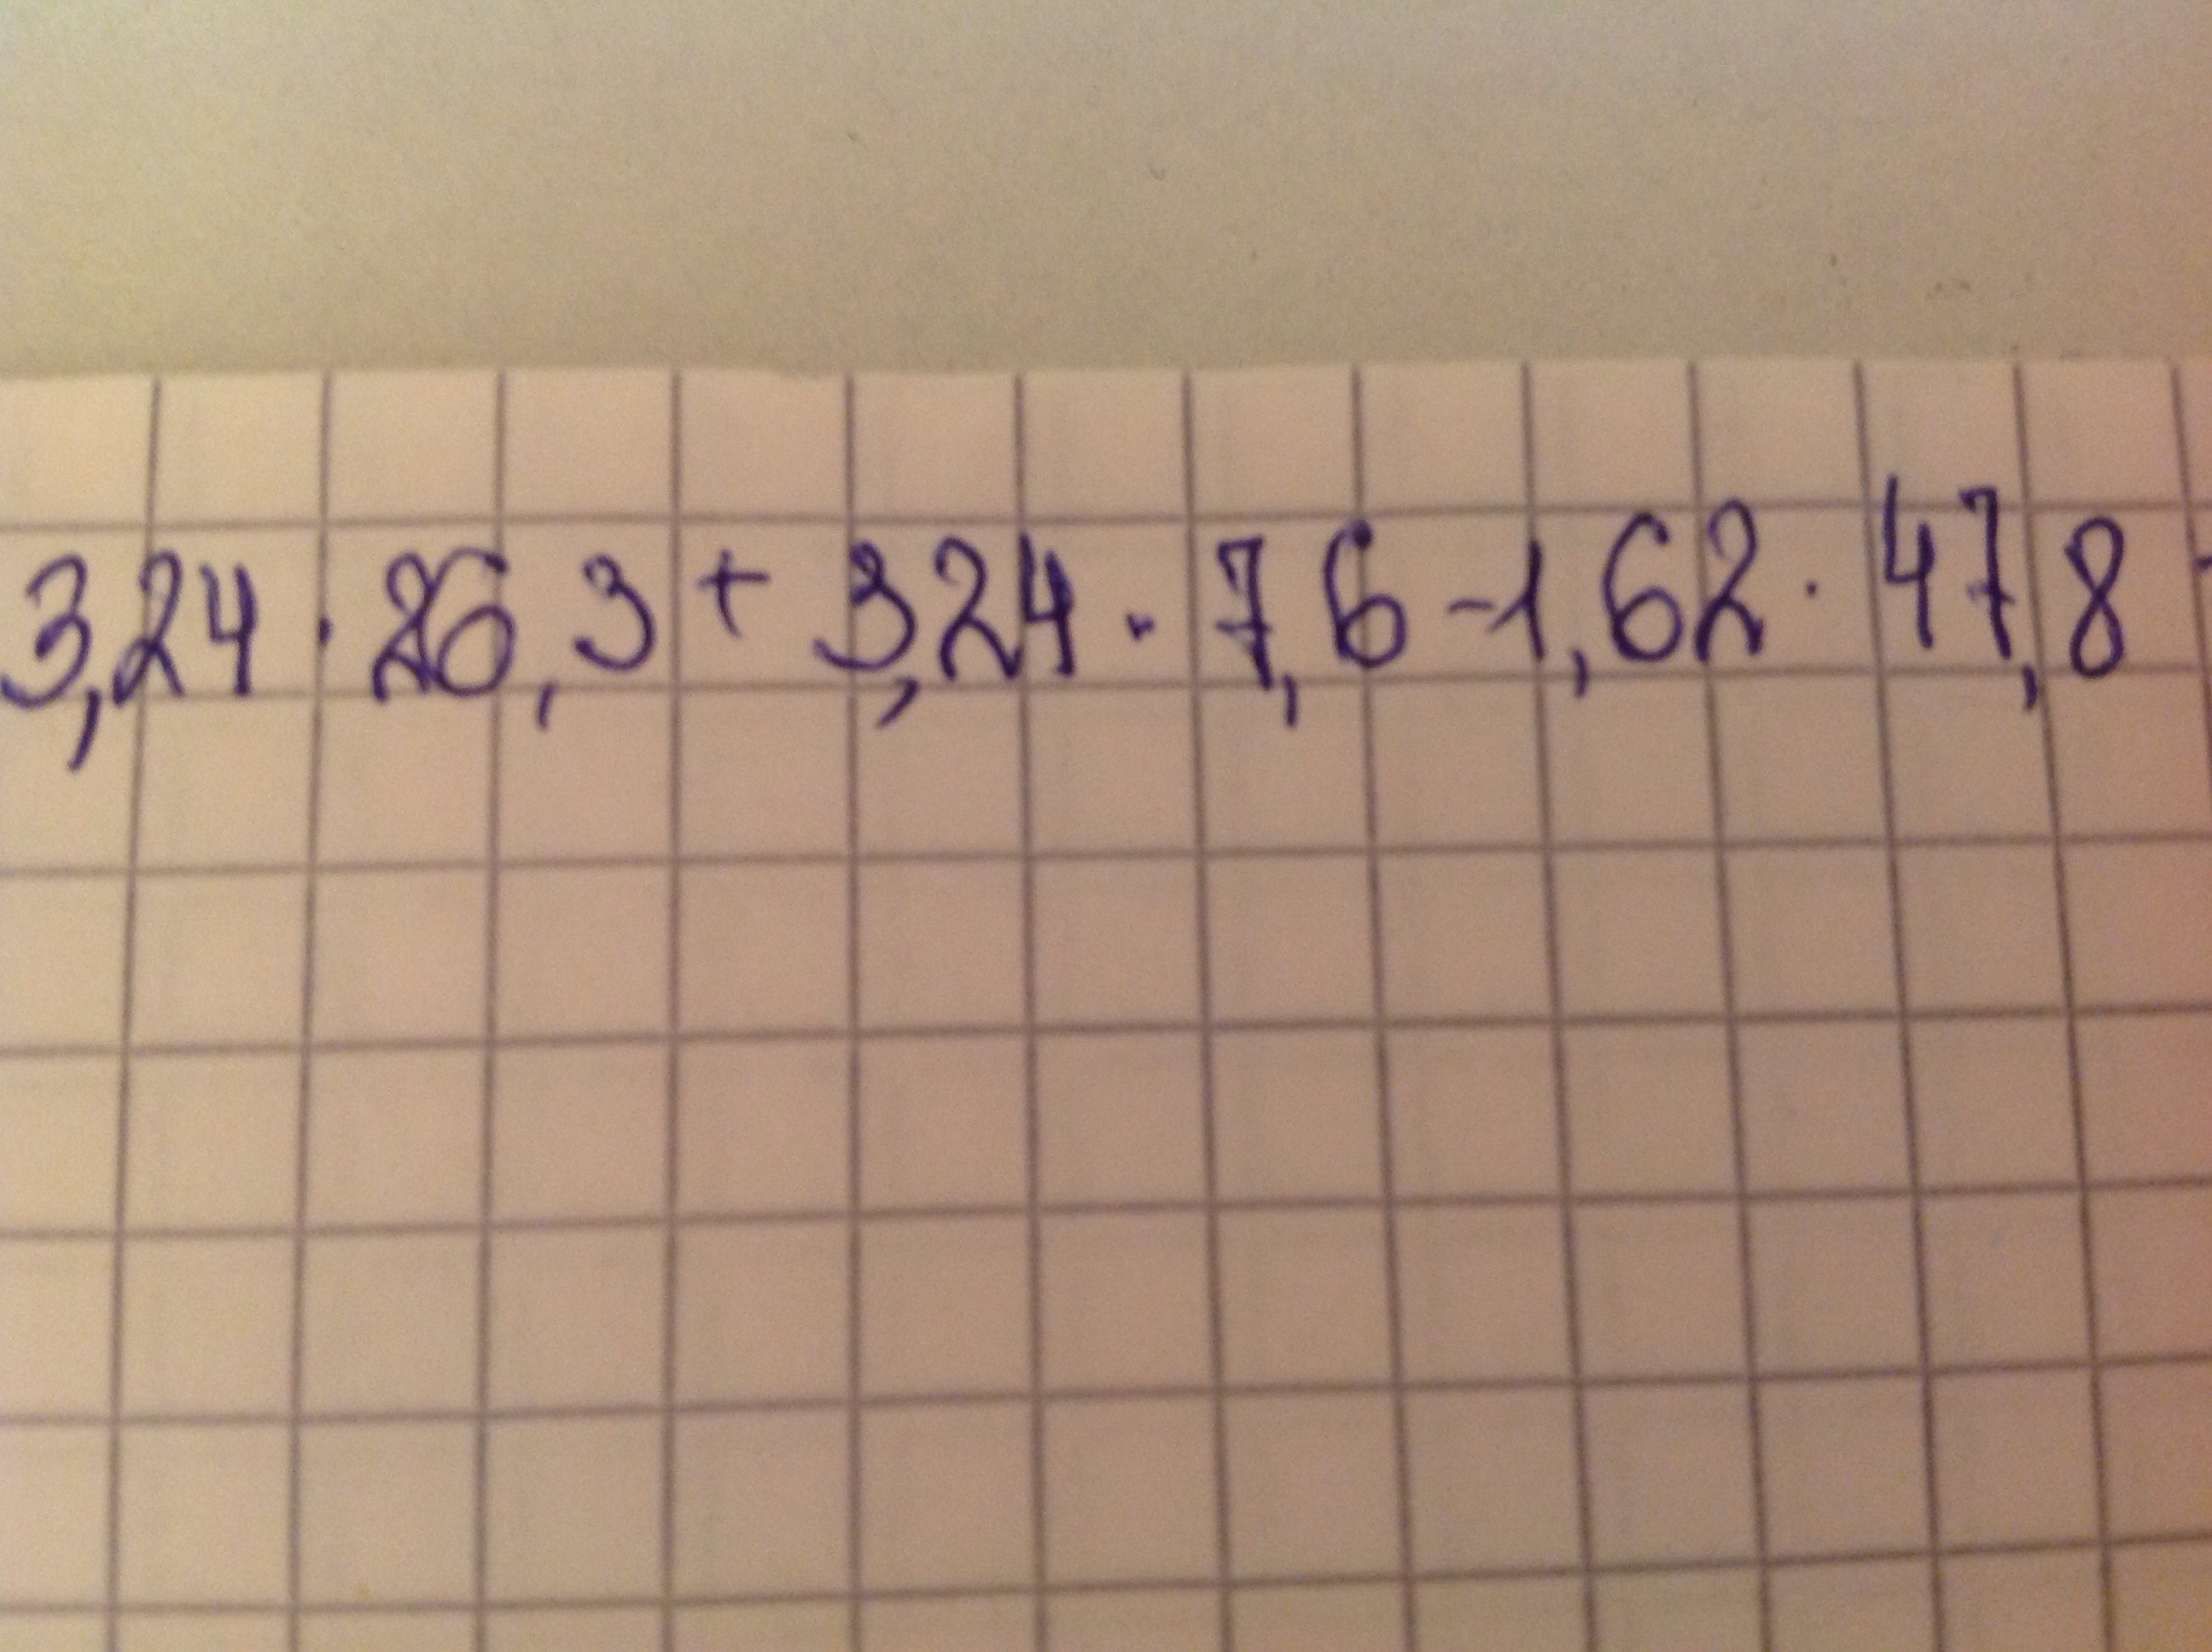 3,24 · 26,3 + 3,24 · 7,6 - 1,62 · 47,8